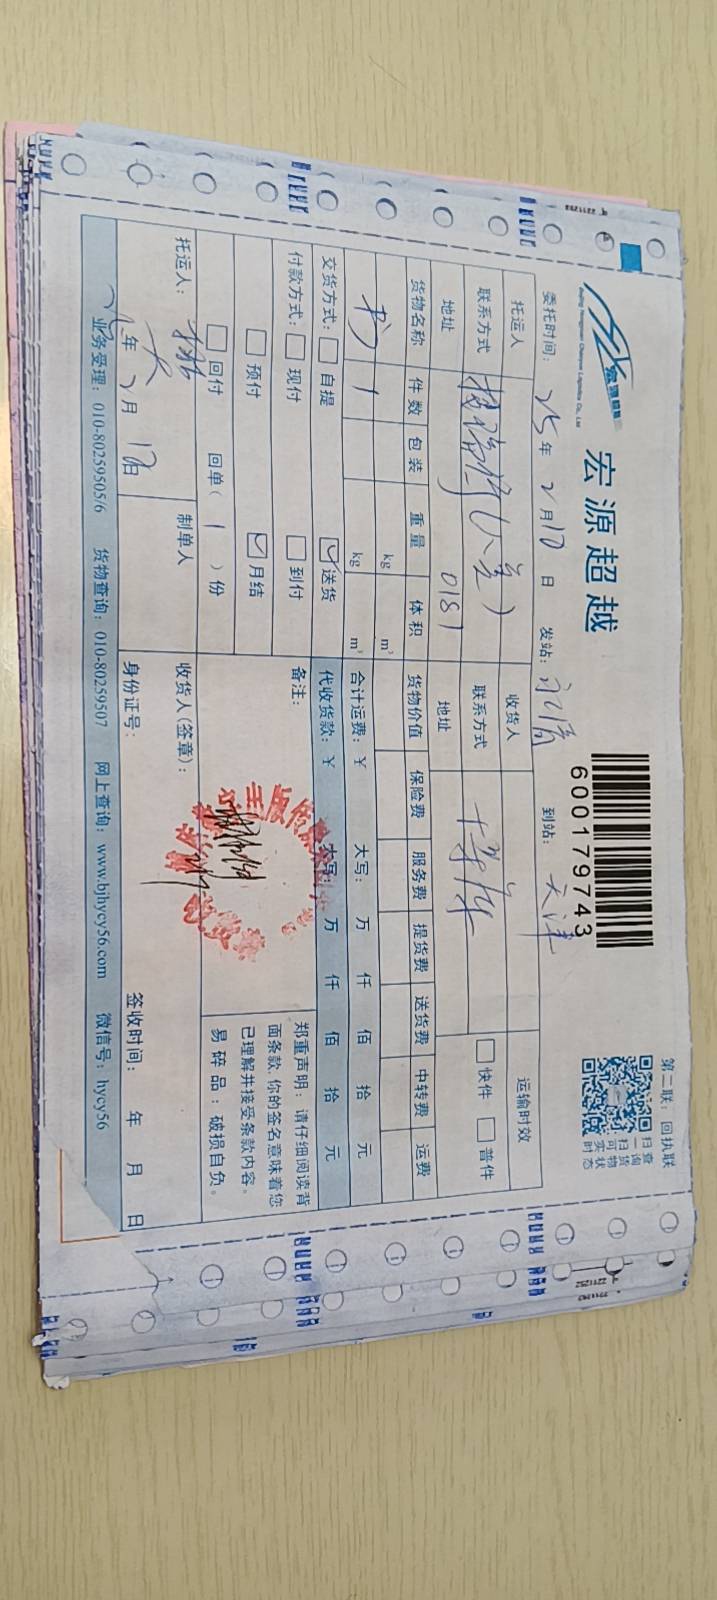 宏源超越
Beijing Hongyuan Chaoyue Logistics Co., Ltd
宏源超越
600179743
第二联：回执联
扫一扫可实时
查询货物状态
委托时间：25年2月10日 发站：永清 到站：天津
托运人 收货人 运输时效
联系方式 联系方式 快件 普件
地址 0181 地址
货物名称 件数 包装 重量 体积 货物价值 保险费 服务费 提货费 送货费 中转费 运费
书 1 kg m³
kg m³ 合计运费：¥ 大写： 万 仟 佰 拾 元
交货方式： 自提 送货 代收货款：¥ 大写： 万 仟 佰 拾 元
付款方式： 现付 到付 备注：
预付 月结
回付 回单（1）份
郑重声明：请仔细阅读背
面条款，你的签名意味着您
已理解并接受条款内容。
易碎品：破损自负。
托运人： 制单人 收货人(签章)：
年2月10日 身份证号： 签收时间： 年 月 日
业务受理：010-80259505/6 货物查询：010-80259507 网上查询：www.bjhycy56.com 微信号：hycy56